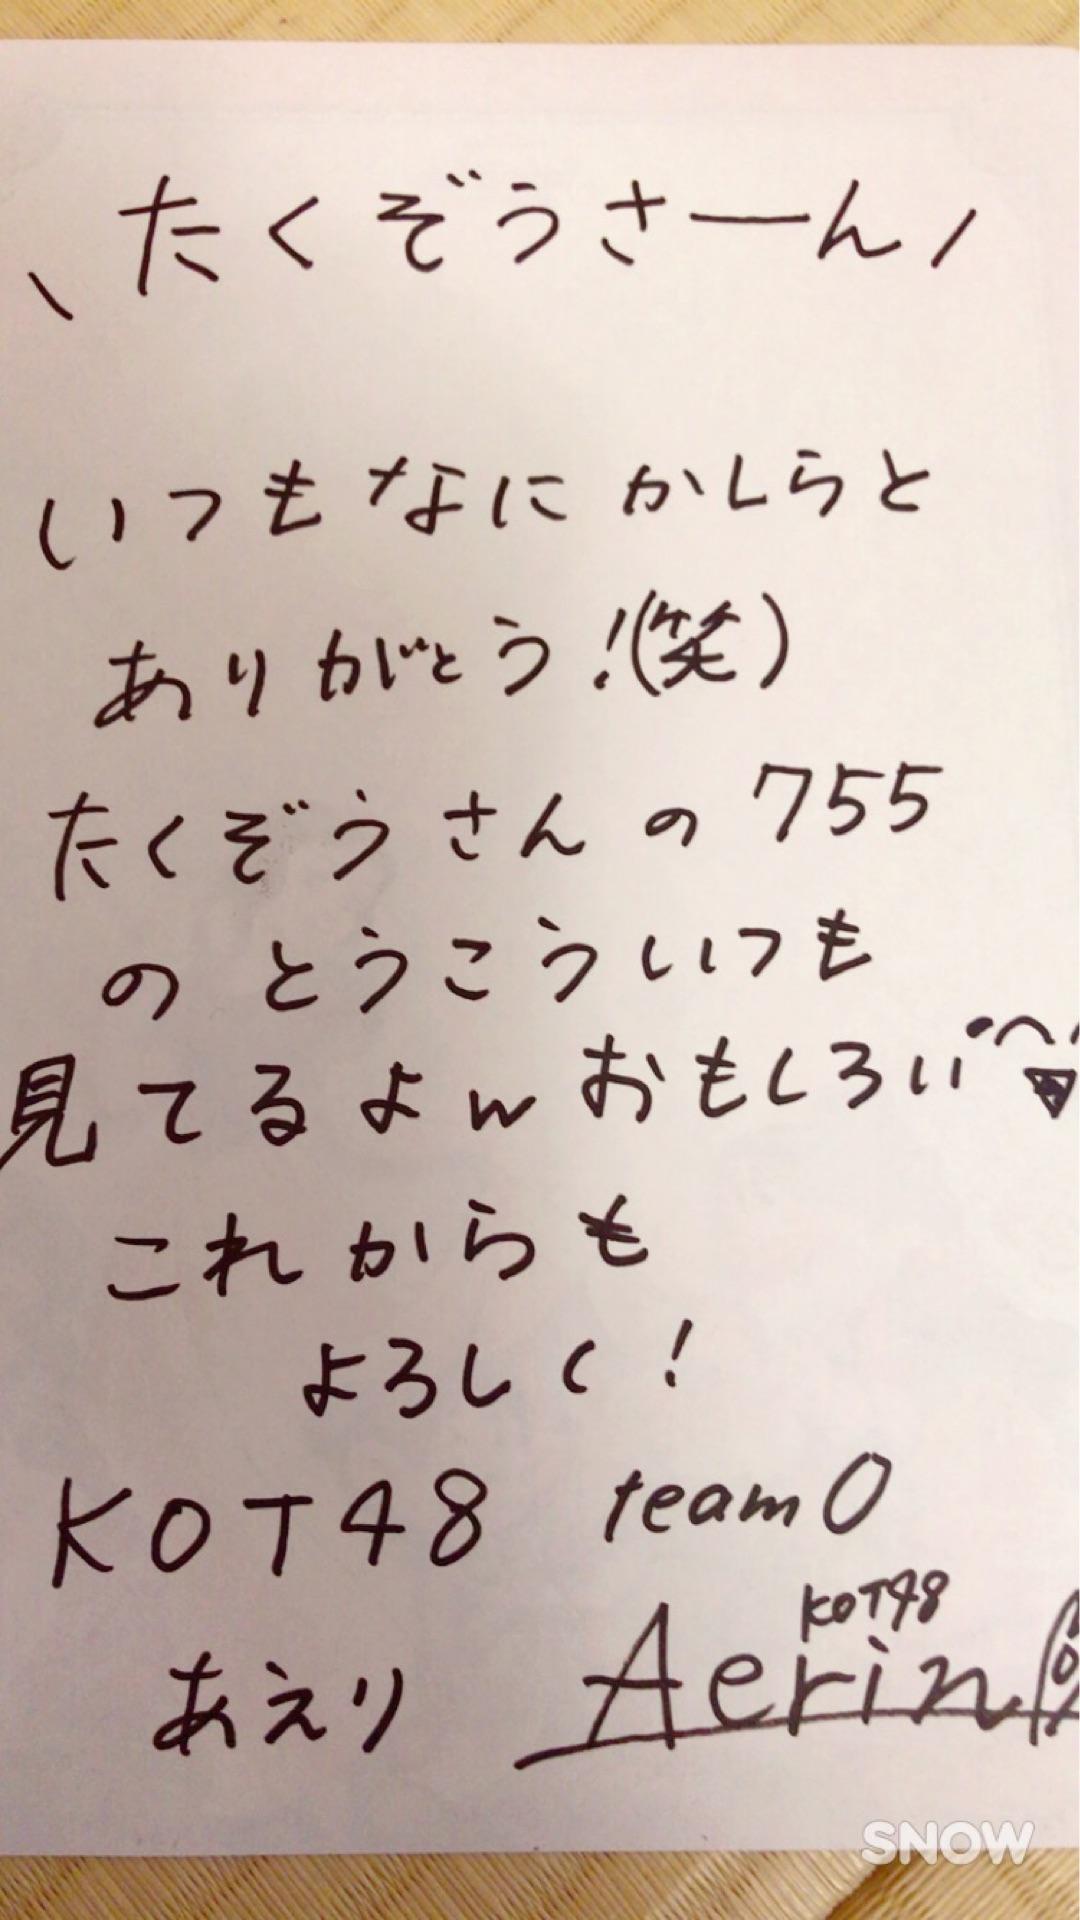 \たくぞうさーん/
いつもなにかしらと
ありがとう!(笑)
たくぞうさんの755
のとうこういつも
見てるよwおもしろい
これからも
よろしく!
KOT48 team O
KOT48
あえり Aerin
SNOW